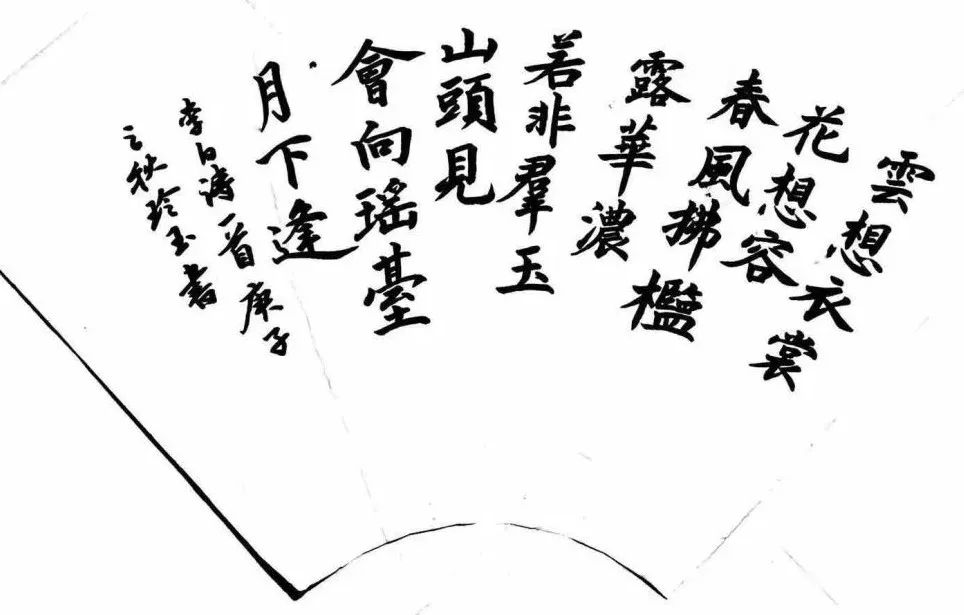 雲想衣裳
花想容
春風拂檻
露華濃
若非羣玉
山頭見
會向瑶臺
月下逢
李白詩一首庚子
之秋玲玉書